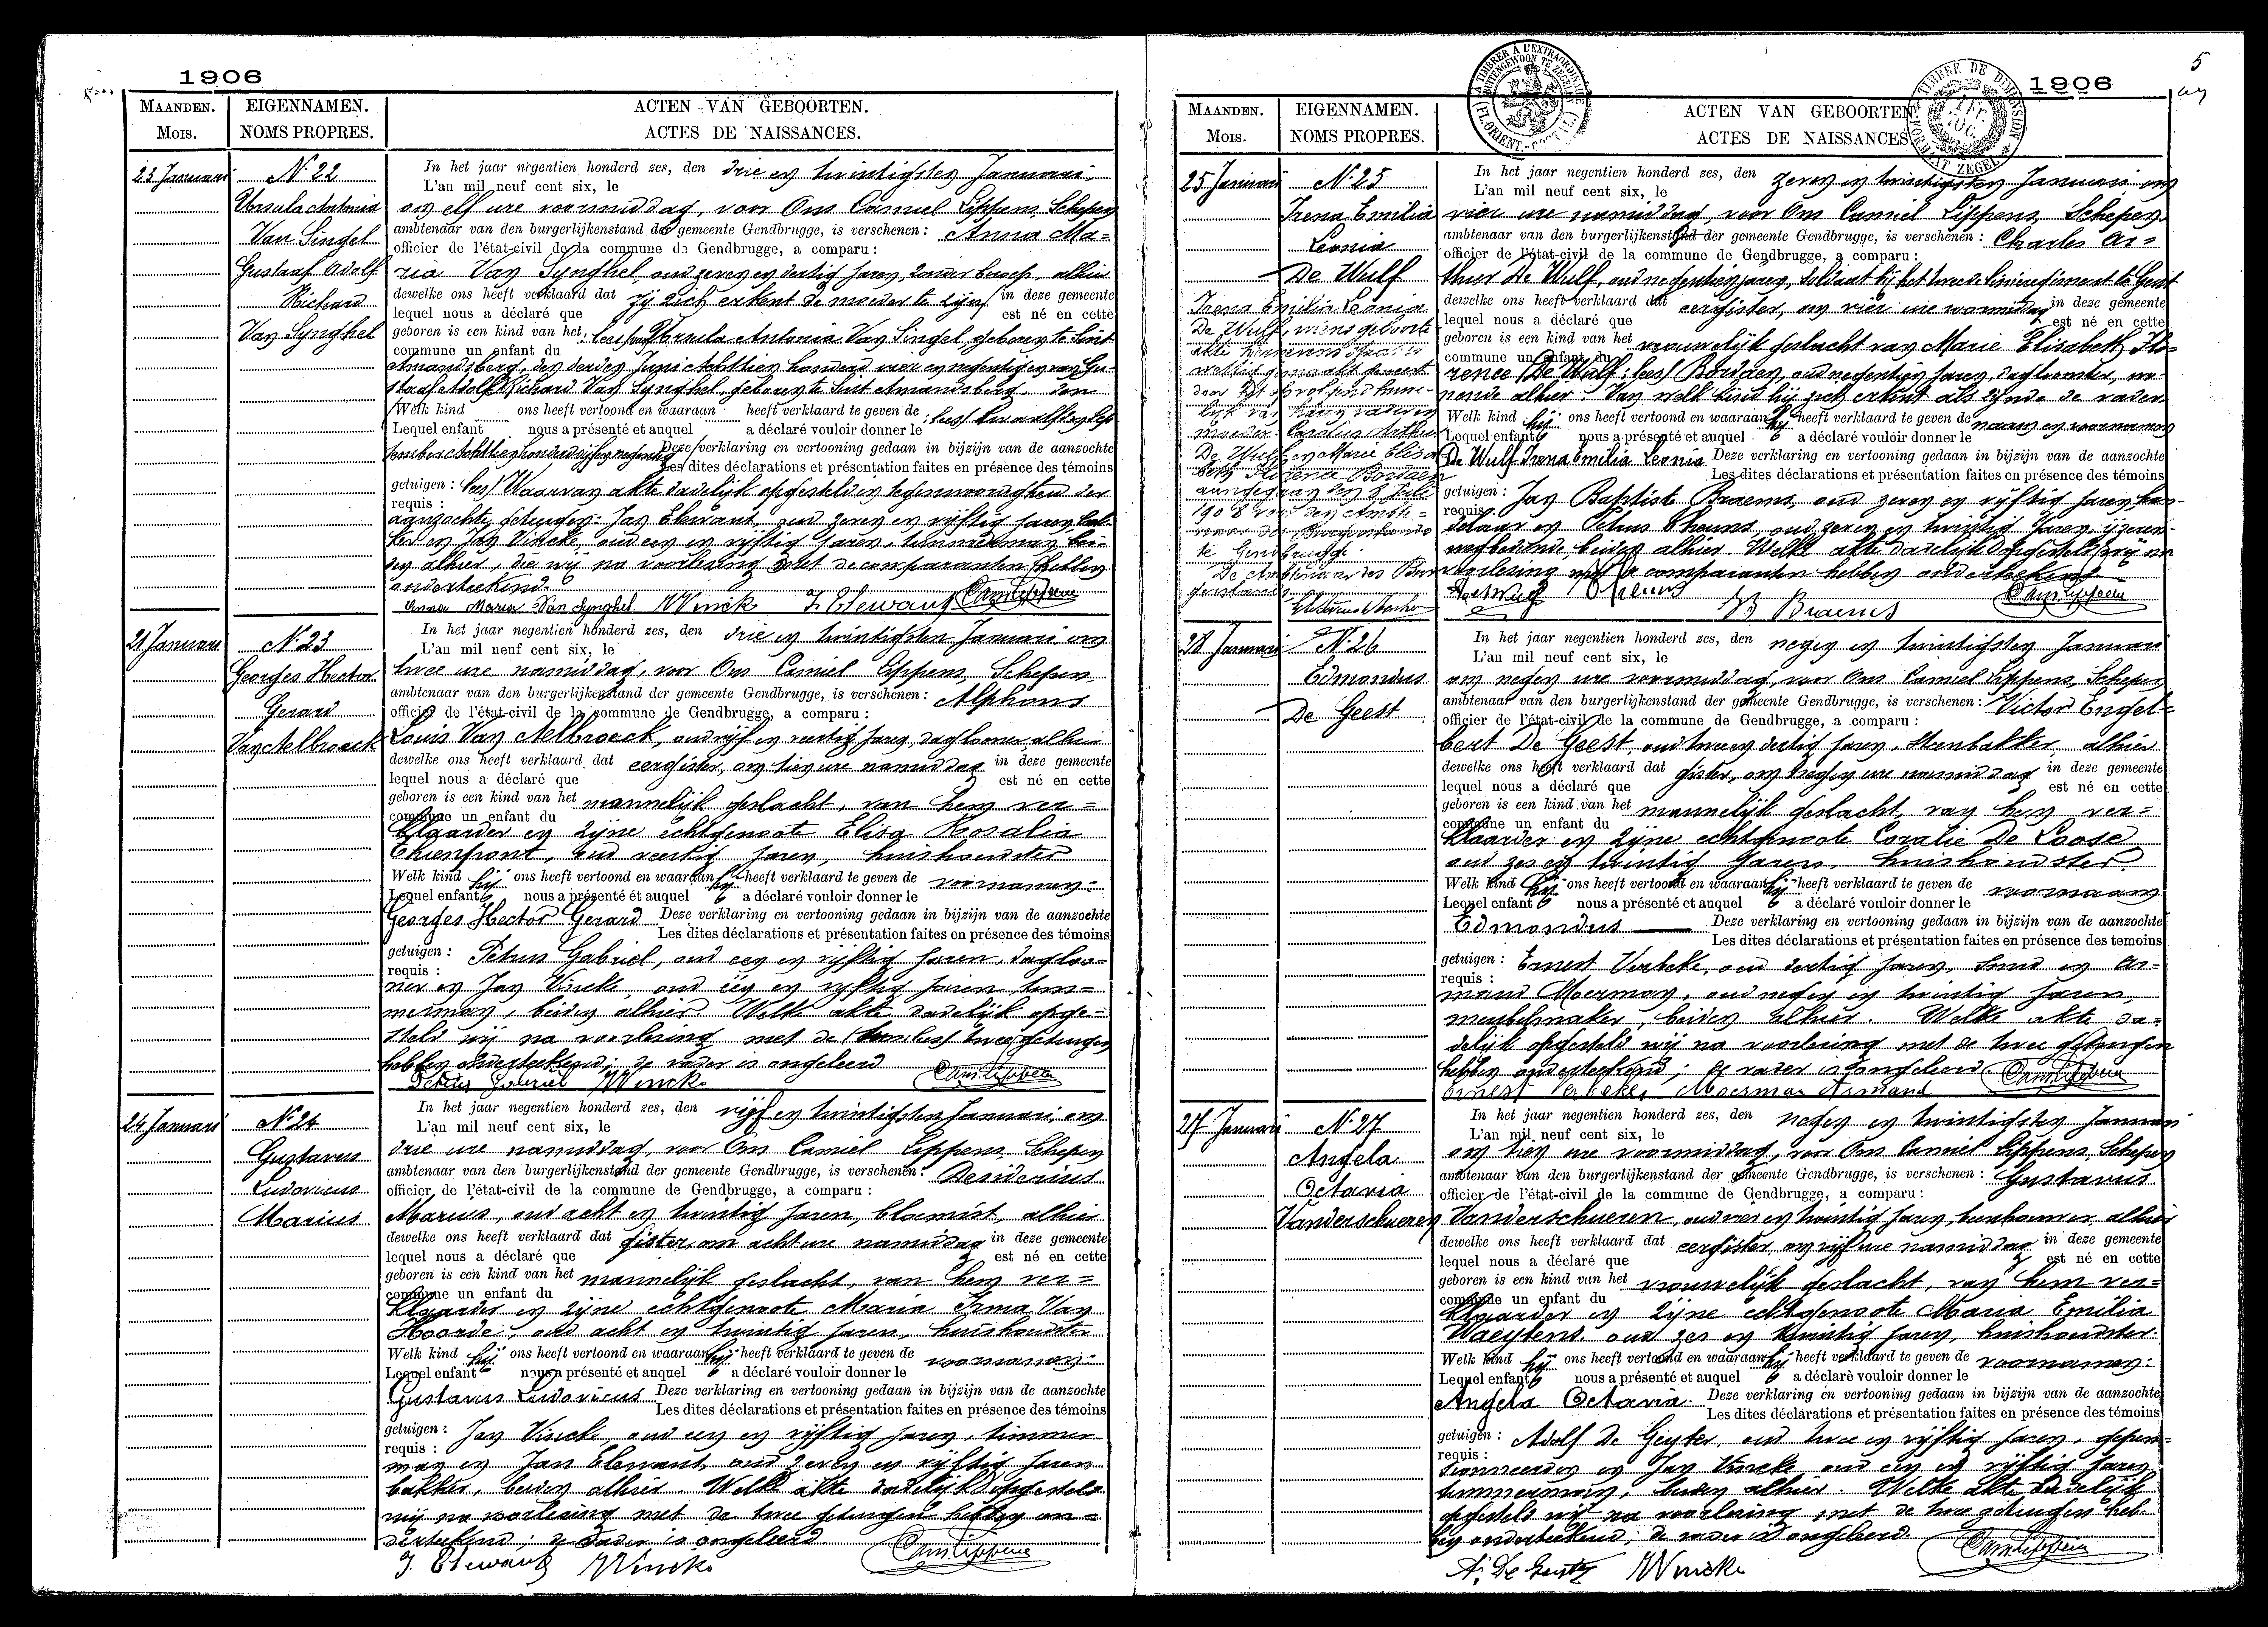 1906
MAANDEN. EIGENNAMEN. ACTEN VAN GEBOORTEN.
Mois. NOMS PROPRES. ACTES DE NAISSANCES.
23 Januari N. 22
Ursula Antonia
Van Singel
Gustaaf Adolf
Richard
Van Synghel
In het jaar negentien honderd zes, den drie en twintigsten Januari
L'an mil neuf cent six, le
om elf ure voormiddag, voor Ons Camiel Lippens, Schepen
ambtenaar van den burgerlijkenstand der gemeente Gendbrugge, is verschenen : Anna Ma=
officier de l'état-civil de la commune de Gendbrugge, a comparu :
ria Van Synghel, oud zeven en dertig jaren, zonder beroep, alhier
dewelke ons heeft verklaard dat zij zich erkent de moeder te zijn in deze gemeente
lequel nous a déclaré que est né en cette
geboren is een kind van het : lees van Ursula Antonia Van Singel geboren te Sint
commune un enfant du
Amandsberg, den derden Juni achttien honderd vier en negentig en van Gu-
staaf Adolf Richard Van Synghel, geboren te Sint Amandsberg, den
Welk kind ons heeft vertoond en waaraan heeft verklaard te geven de : lees twaalfsten Sep
Lequel enfant nous a présenté et auquel a déclaré vouloir donner le
tember achttien honderd vijf en negentig Deze verklaring en vertooning gedaan in bijzijn van de aanzochte
Les dites déclarations et présentation faites en présence des témoins
getuigen : lees Waarvan akte dadelijk opgesteld in tegenwoordigheid der
requis :
aanzochte getuigen : Jan Elewaut, oud zeven en vijftig jaren, bak-
ker en Jan Vincke, oud een en vijftig jaren, timmerman, bei-
den alhier, die wij na voorlezing met de comparanten hebben
onderteekend
Anna Maria Van Synghel JVincke J. Elewaut Cam Lippens
21 Januari N. 23
Georges Hector
Gerard
Van Aelbroeck
In het jaar negentien honderd zes, den drie en twintigsten Januari om
L'an mil neuf cent six, le
twee ure namiddag, voor Ons Camiel Lippens, Schepen
ambtenaar van den burgerlijkenstand der gemeente Gendbrugge, is verschenen : Alphons
officier de l'état-civil de la commune de Gendbrugge, a comparu :
Louis Van Aelbroeck, oud vijf en veertig jaren, daglooner, alhier
dewelke ons heeft verklaard dat eergister, om tien ure namiddag in deze gemeente
lequel nous a déclaré que est né en cette
geboren is een kind van het mannelijk geslacht, van hem ver=
commune un enfant du
klaarder en zijne echtgenoote Elisa Rosalia
Thienpont, oud veertig jaren, huishoudster
Welk kind hij ons heeft vertoond en waaraan hij heeft verklaard te geven de voornamen :
Lequel enfant nous a présenté et auquel a déclaré vouloir donner le
Georges Hector Gerard Deze verklaring en vertooning gedaan in bijzijn van de aanzochte
Les dites déclarations et présentation faites en présence des témoins
getuigen : Petrus Gabriel, oud een en vijftig jaren, dagloo=
requis :
ner en Jan Vincke, oud een en vijftig jaren tim=
merman, beiden alhier. Welke akte dadelijk opge=
steld wij na voorlezing met de lees twee getuigen
hebben onderteekend; de vader is ongeleerd
Petrus Gabriel JVincke Cam Lippens
24 Januari N. 24
Gustavus
Ludovicus
Marius
In het jaar negentien honderd zes, den vijf en twintigsten Januari, om
L'an mil neuf cent six, le
drie ure namiddag, voor Ons Camiel Lippens, Schepen
ambtenaar van den burgerlijkenstand der gemeente Gendbrugge, is verschenen : Desiderius
officier de l'état-civil de la commune de Gendbrugge, a comparu :
Marius, oud acht en twintig jaren, bloemist, alhier
dewelke ons heeft verklaard dat gister, om acht ure namiddag in deze gemeente
lequel nous a déclaré que est né en cette
geboren is een kind van het mannelijk geslacht, van hem ver=
commune un enfant du
klaarder en zijne echtgenoote Maria Irma Van
Hoorde, oud acht en twintig jaren, huishoudster
Welk kind hij ons heeft vertoond en waaraan hij heeft verklaard te geven de voornamen :
Lequel enfant nous a présenté et auquel a déclaré vouloir donner le
Gustavus Ludovicus Deze verklaring en vertooning gedaan in bijzijn van de aanzochte
Les dites déclarations et présentation faites en présence des témoins
getuigen : Jan Vincke, oud een en vijftig jaren, timmer
requis :
man en Jan Elewaut, oud zeven en vijftig jaren
bakker, beiden alhier. Welke akte dadelijk opgesteld
wij na voorlezing met de twee getuigen hebben on=
derteekend; de vader is ongeleerd
J. Elewaut JVincke Cam Lippens
5
1906
A TIMBRER A L'EXTRAORDINAIRE
BUITENGEWOON TE ZEGELEN
(FL. ORIENT.-
TIMBRE DE DIMENSION
FORMAAT ZEGEL
MAANDEN. EIGENNAMEN. ACTEN VAN GEBOORTEN.
Mois. NOMS PROPRES. ACTES DE NAISSANCES
25 Januari N. 25
Irena Emilia
Leonia
De Wulf
Irena Emilia Leonia
De Wulf, wiens geboorte
akte hiernevens staat is
wettig gemaakt geweest
door het opvolgend huwe-
lijk van haren vader en
moeder Carolus Arthur
De Wulf en Marie Elisa
beth Florence Bordaen
aangegaan den Juli
1908 voor den Ambte=
naar des Burgerstands
te Gendbrugge.
De Ambtenaar des Bur
gerstands
In het jaar negentien honderd zes, den zeven en twintigsten Januari om
L'an mil neuf cent six, le
vier ure namiddag, voor Ons Camiel Lippens, Schepen
ambtenaar van den burgerlijkenstand der gemeente Gendbrugge, is verschenen : Charles Ar=
officier de l'état-civil de la commune de Gendbrugge, a comparu :
thur De Wulf, oud negentien jaren, soldaat bij het tweede Linieregiment te Gent
dewelke ons heeft verklaard dat eergister, om vier ure voormiddag in deze gemeente
lequel nous a déclaré que est né en cette
geboren is een kind van het vrouwelijk geslacht van Marie Elisabeth Flo=
commune un enfant du
rence De Wulf; lees Bordaen, oud negentien jaren, dagloonster, wo=
nende alhier. Van welk kind hij zich erkent als zijnde de vader
Welk kind hij ons heeft vertoond en waaraan hij heeft verklaard te geven de naam en voornamen
Lequel enfant nous a présenté et auquel a déclaré vouloir donner le
De Wulf Irena Emilia Leonia Deze verklaring en vertooning gedaan in bijzijn van de aanzochte
Les dites déclarations et présentation faites en présence des témoins
getuigen : Jan Baptist Braems, oud zeven en vijftig jaren, han-
requis :
delaar en Petrus Sheuns, oud zeven en twintig jaren, ijzeren-
wegbediende beiden alhier. Welke akte dadelijk opgesteld wij na
voorlezing met de comparanten hebben onderteekend
JB Braems Cam Lippens
28 Januari N. 26
Edmondus
De Geest
In het jaar negentien honderd zes, den negen en twintigsten Januari
L'an mil neuf cent six, le
om negen ure voormiddag, voor Ons Camiel Lippens, Schepen
ambtenaar van den burgerlijkenstand der gemeente Gendbrugge, is verschenen : Victor Engel=
officier de l'état-civil de la commune de Gendbrugge, a comparu :
bert De Geest, oud twee en dertig jaren, steenbakker alhier
dewelke ons heeft verklaard dat gister, om negen ure namiddag in deze gemeente
lequel nous a déclaré que est né en cette
geboren is een kind van het mannelijk geslacht, van hem ver=
commune un enfant du
klaarder en zijne echtgenoote Coralie De Loose
oud zes en twintig jaren, huishoudster
Welk kind hij ons heeft vertoond en waaraan hij heeft verklaard te geven de voornaam
Lequel enfant nous a présenté et auquel a déclaré vouloir donner le
Edmondus Deze verklaring en vertooning gedaan in bijzijn van de aanzochte
Les dites déclarations et présentation faites en présence des temoins
getuigen : Ernest Verbeke, oud dertig jaren, smid en Ar=
requis :
mand Moerman, oud negen en twintig jaren,
meubelmaker, beiden alhier. Welke akte da=
delijk opgesteld wij na voorlezing met de twee getuigen
hebben onderteekend; de vader is ongeleerd
Ernest Verbeke Moerman Armand Cam Lippens
27 Januari N. 27
Angela
Octavia
Vanderschueren
In het jaar negentien honderd zes, den negen en twintigsten Januari
L'an mil neuf cent six, le
om tien ure voormiddag, voor Ons Camiel Lippens, Schepen
ambtenaar van den burgerlijkenstand der gemeente Gendbrugge, is verschenen : Gustavus
officier de l'état-civil de la commune de Gendbrugge, a comparu :
Vanderschueren, oud vier en twintig jaren, alhier
dewelke ons heeft verklaard dat eergister, om vijf ure namiddag in deze gemeente
lequel nous a déclaré que est né en cette
geboren is een kind van het vrouwelijk geslacht, van hem ver=
commune un enfant du
klaarder en zijne echtgenoote Maria Emilia
Waeytens oud zes en twintig jaren, huishoudster
Welk kind hij ons heeft vertoond en waaraan hij heeft verklaard te geven de voornamen :
Lequel enfant nous a présenté et auquel a déclarè vouloir donner le
Angela Octavia. Deze verklaring en vertooning gedaan in bijzijn van de aanzochte
Les dites déclarations et présentation faites en présence des témoins
getuigen : Adolf De Geyter, oud twee en vijftig jaren, gepen=
requis :
sionneerden en Jan Vincke oud een en vijftig jaren
timmerman, beiden alhier. Welke akte dadelijk
opgesteld wij na voorlezing met de twee getuigen heb-
ben onderteekend, de vader is ongeleerd.
A. De Geyter JVincke Cam Lippens